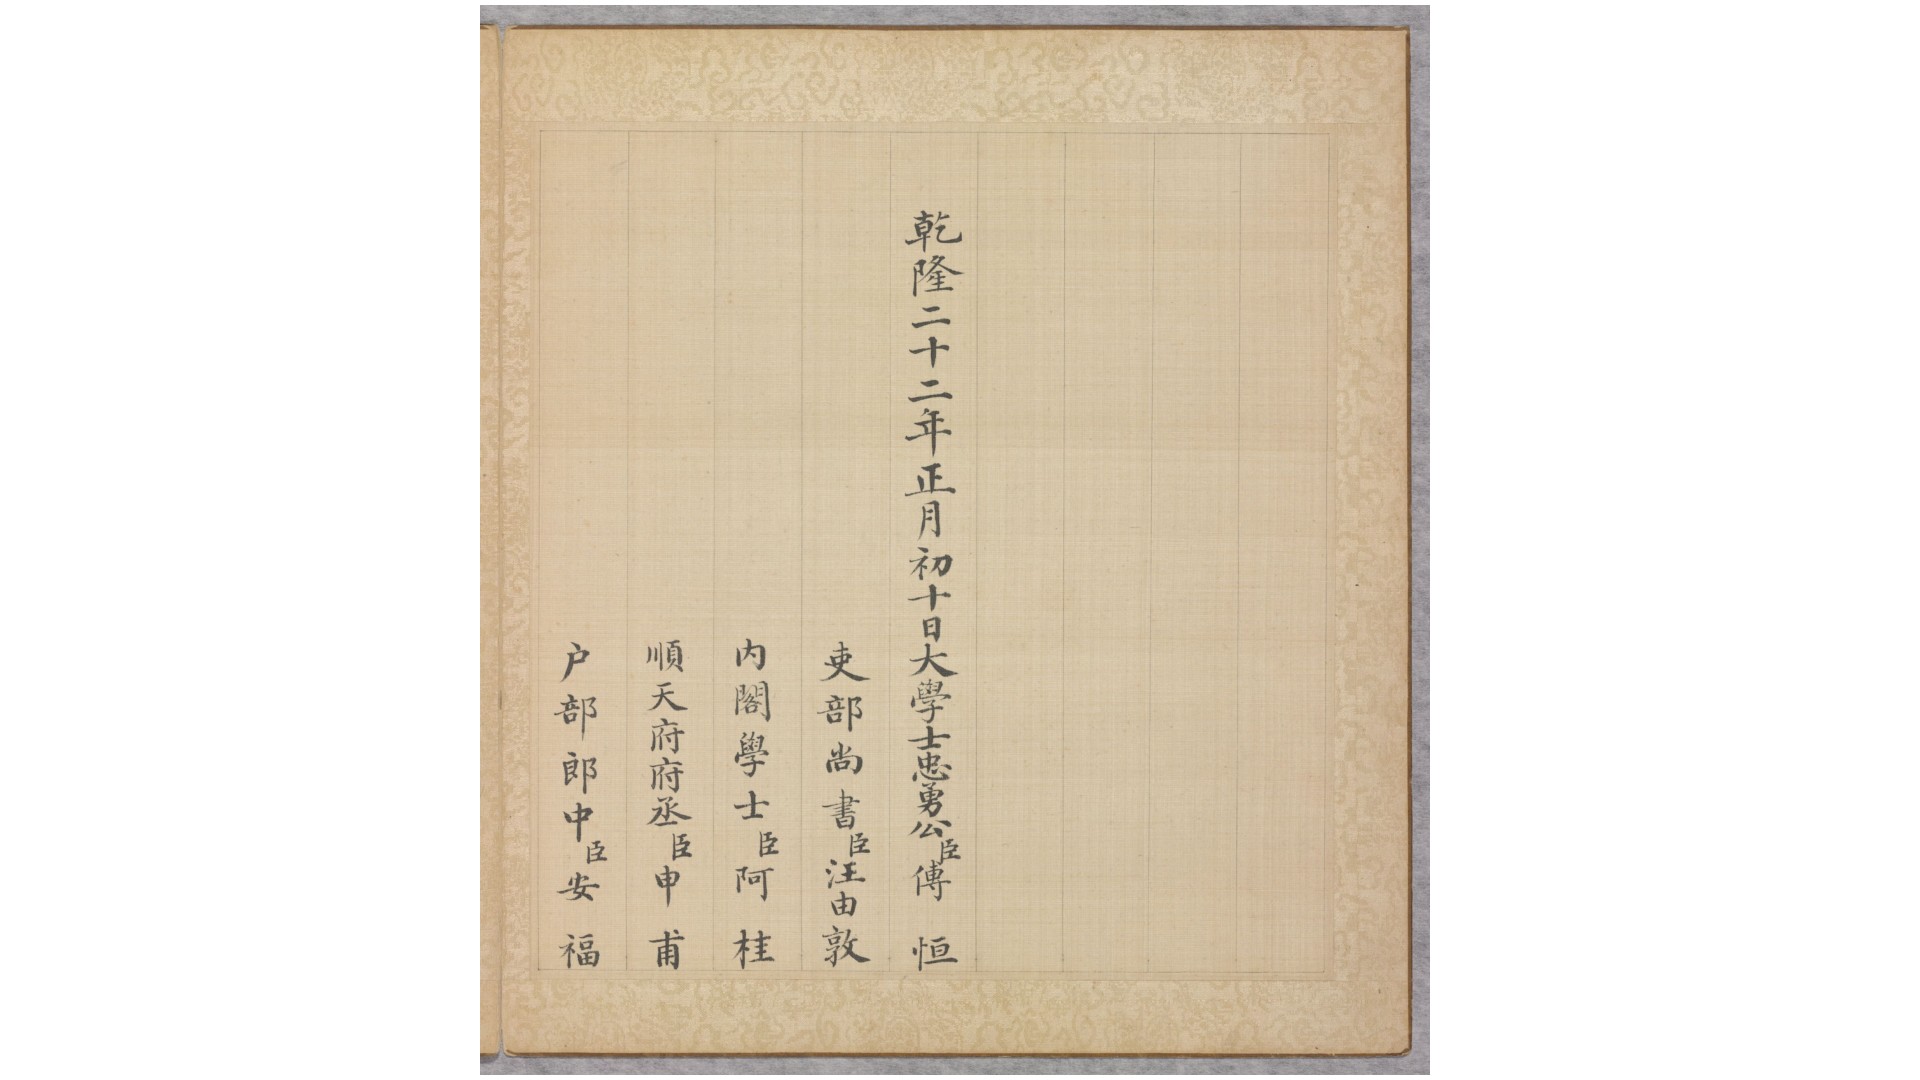 乾隆二十二年正月初十日大學士忠勇公臣傅恒
吏部尚書臣汪由敦
内閣學士臣阿桂
順天府府丞臣申甫
户部郎中臣安福